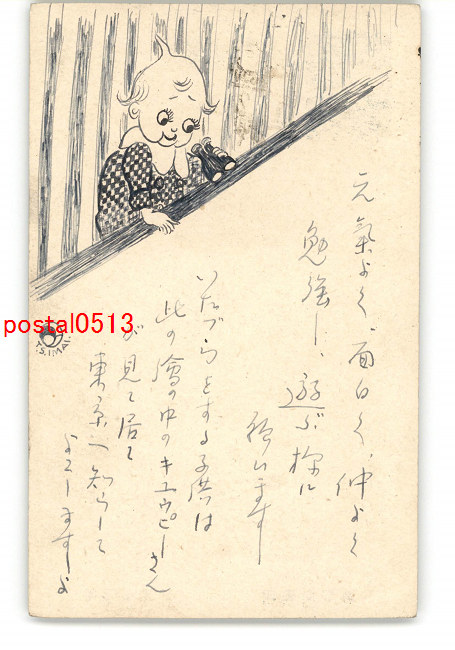 元氣よく、面白く、仲よく
勉強し、遊ぶ様に
願います
いたづらをする子供は
此の繪の中のキユウピーさん
が見て居て
東京へ知らして
よこしますよ
postal0513
S.IMAI